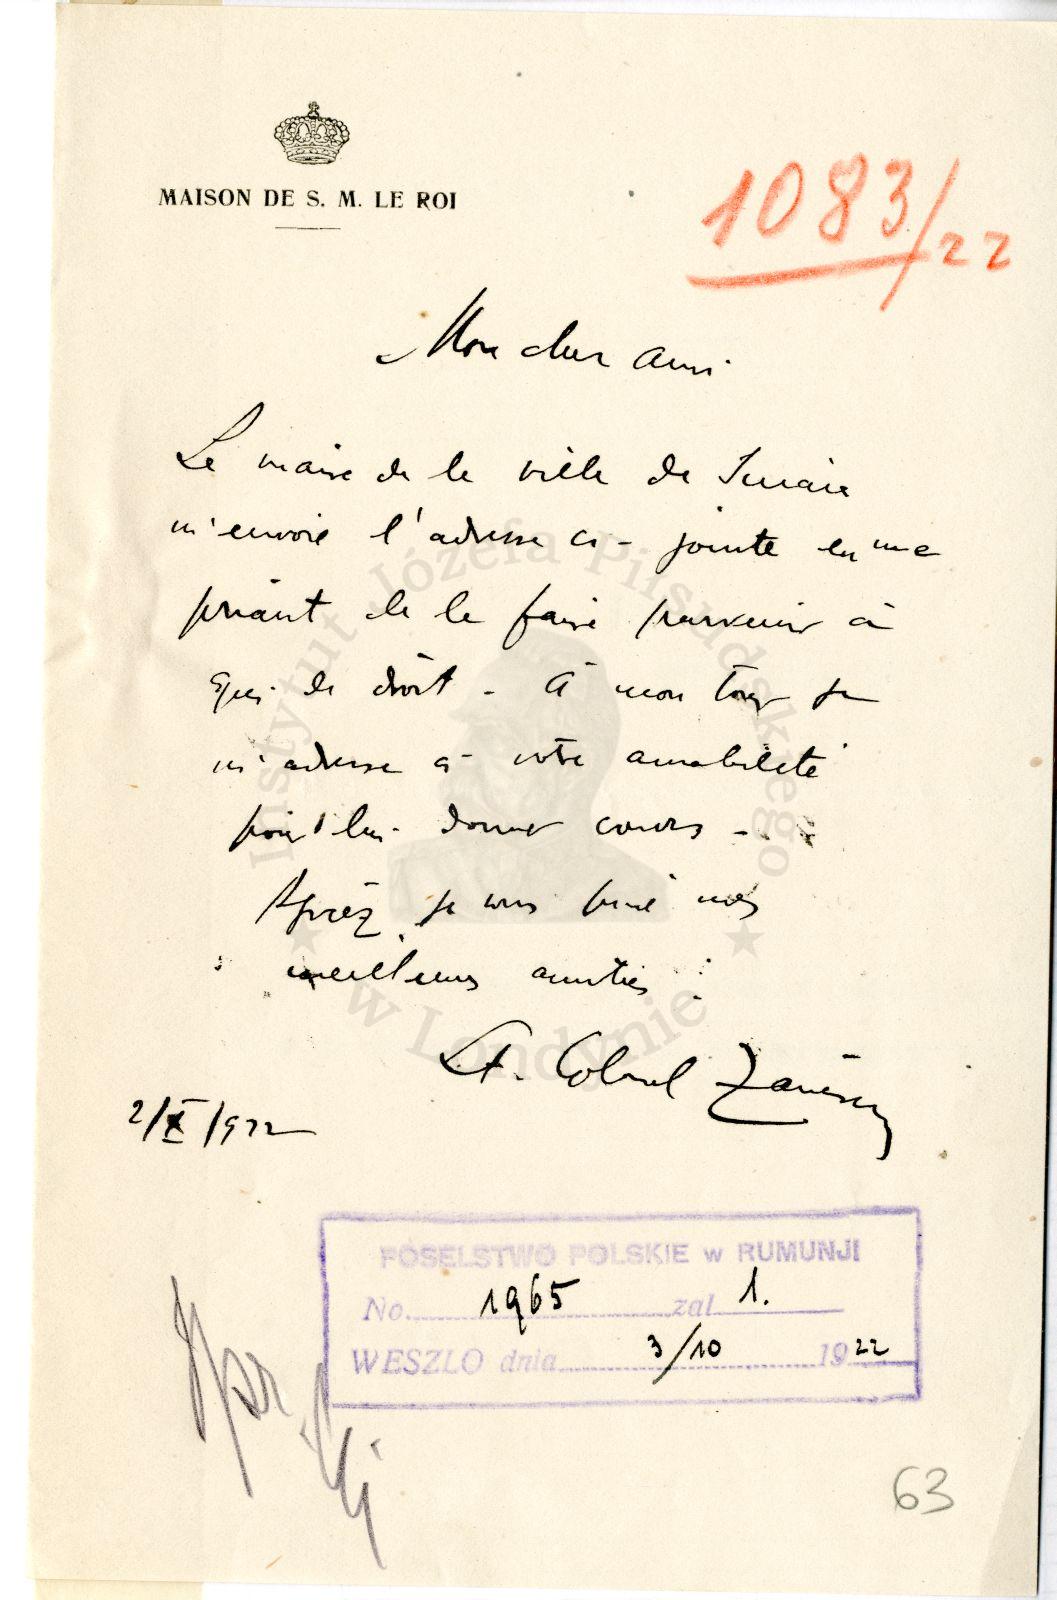 MAISON DE S. M. LE ROI
1083/22
Mon cher ami
Le maire de la ville de Sinaia
m'envoie l'adresse ci-jointe en me
priant de la faire parvenir à
qui de droit - A mon tour je
m'adresse à votre amabilité
pour lui donner cours -
Agréez je vous prie mes
meilleures amitiés
Lt. Colonel
2/X/922
POSELSTWO POLSKIE w RUMUNJI
No. 1965 zal 1.
WESZLO dnia 3/10 1922
63
Instytut Józefa Piłsudskiego
w Londynie